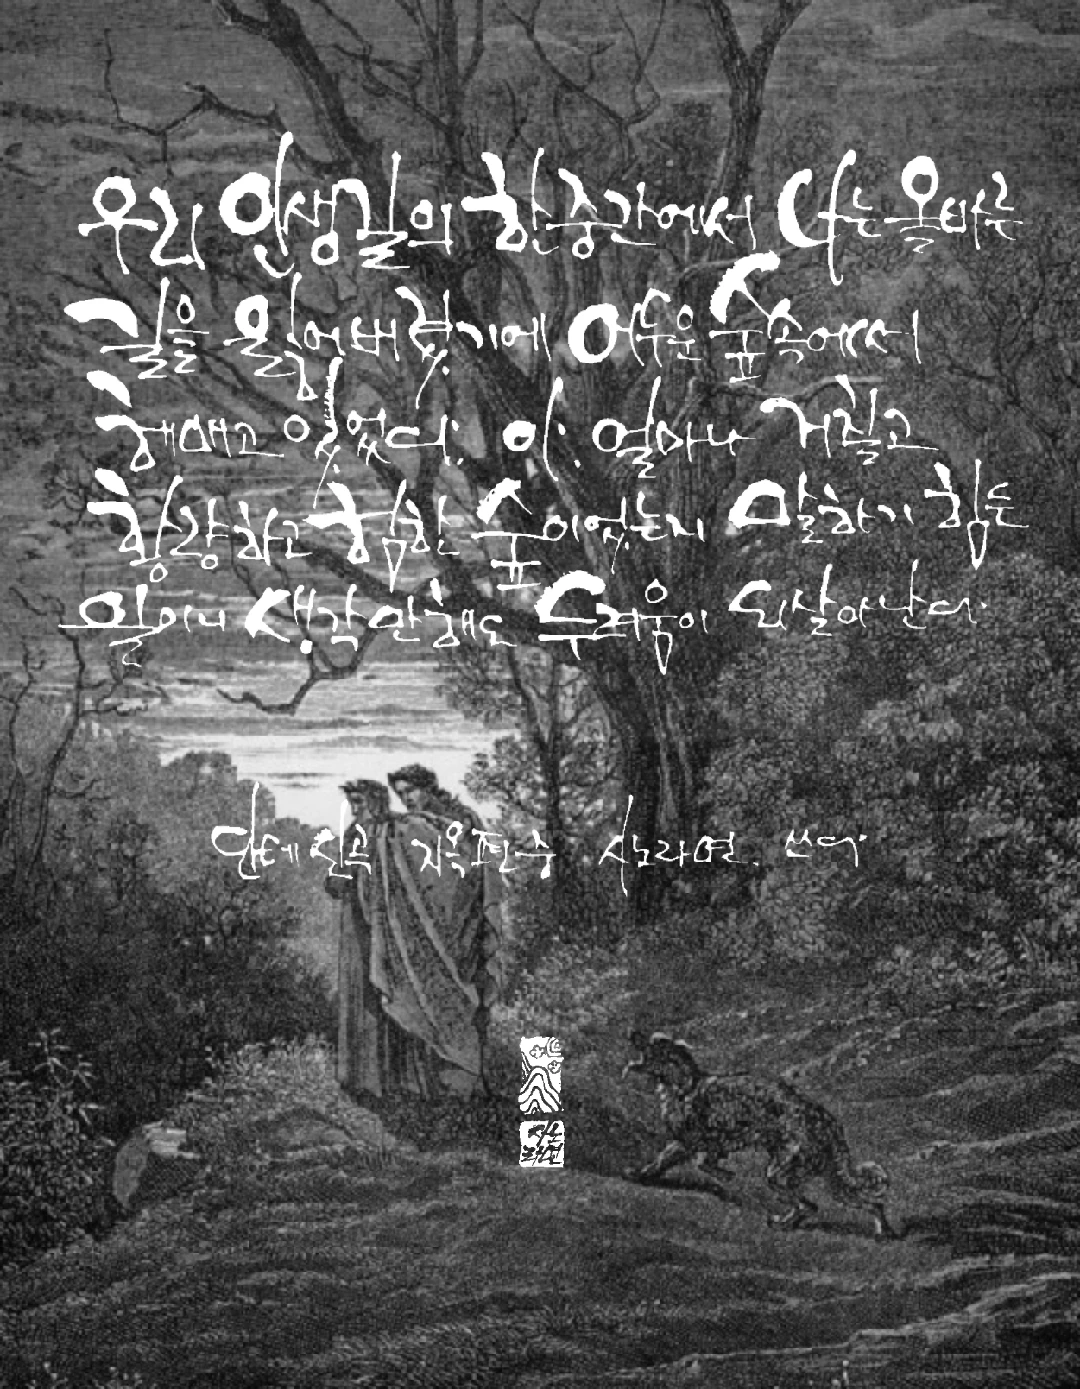 우리 인생길의 한중간에서 나는 올바른
길을 잃어버렸기에 어두운 숲속에서
헤매고 있었다. 아! 얼마나 거칠고
황량하고 험한 숲이었는지 말하기 힘든
일이니 생각만해도 두려움이 되살아난다.
단테 신곡 지옥편 中 쓰다.